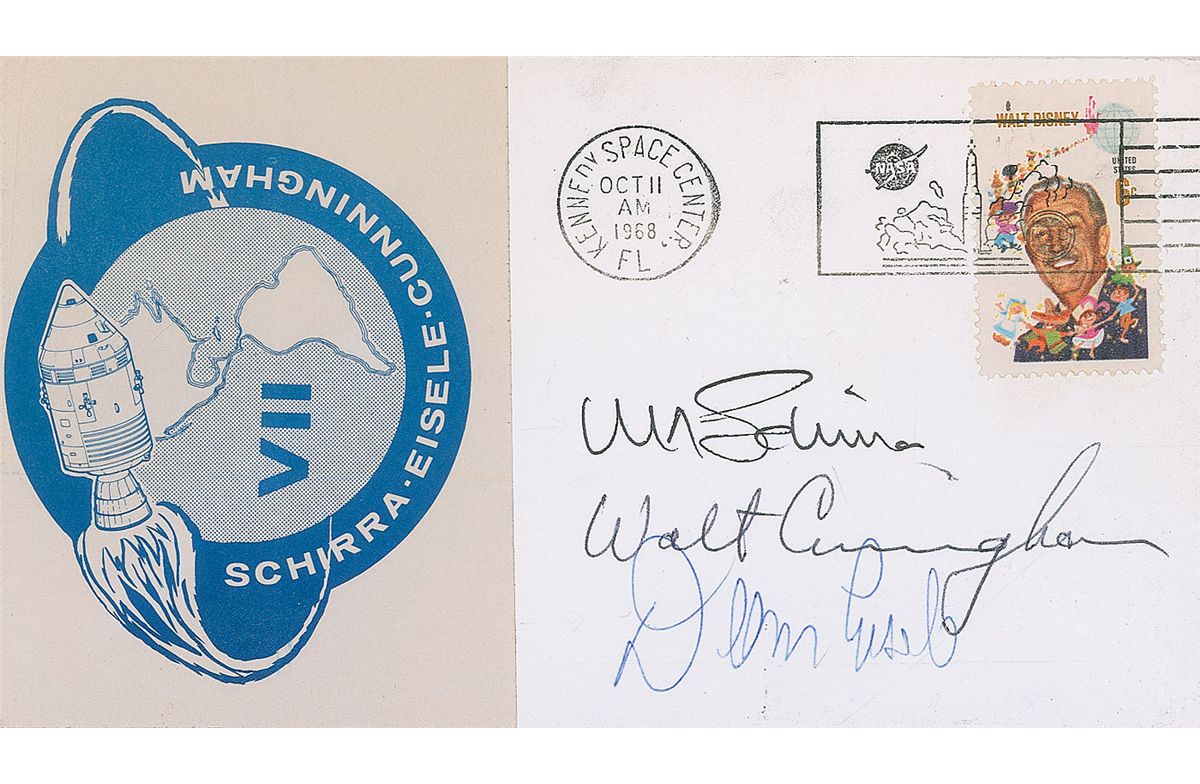 SCHIRRA·EISELE·CUNNINGHAM
VII
KENNEDY SPACE CENTER,
OCT 11
AM
1968
FL
NASA
WALT DISNEY
UNITED
STATES
6c
W Schirra
Walt Cunningham
Donn Eisele